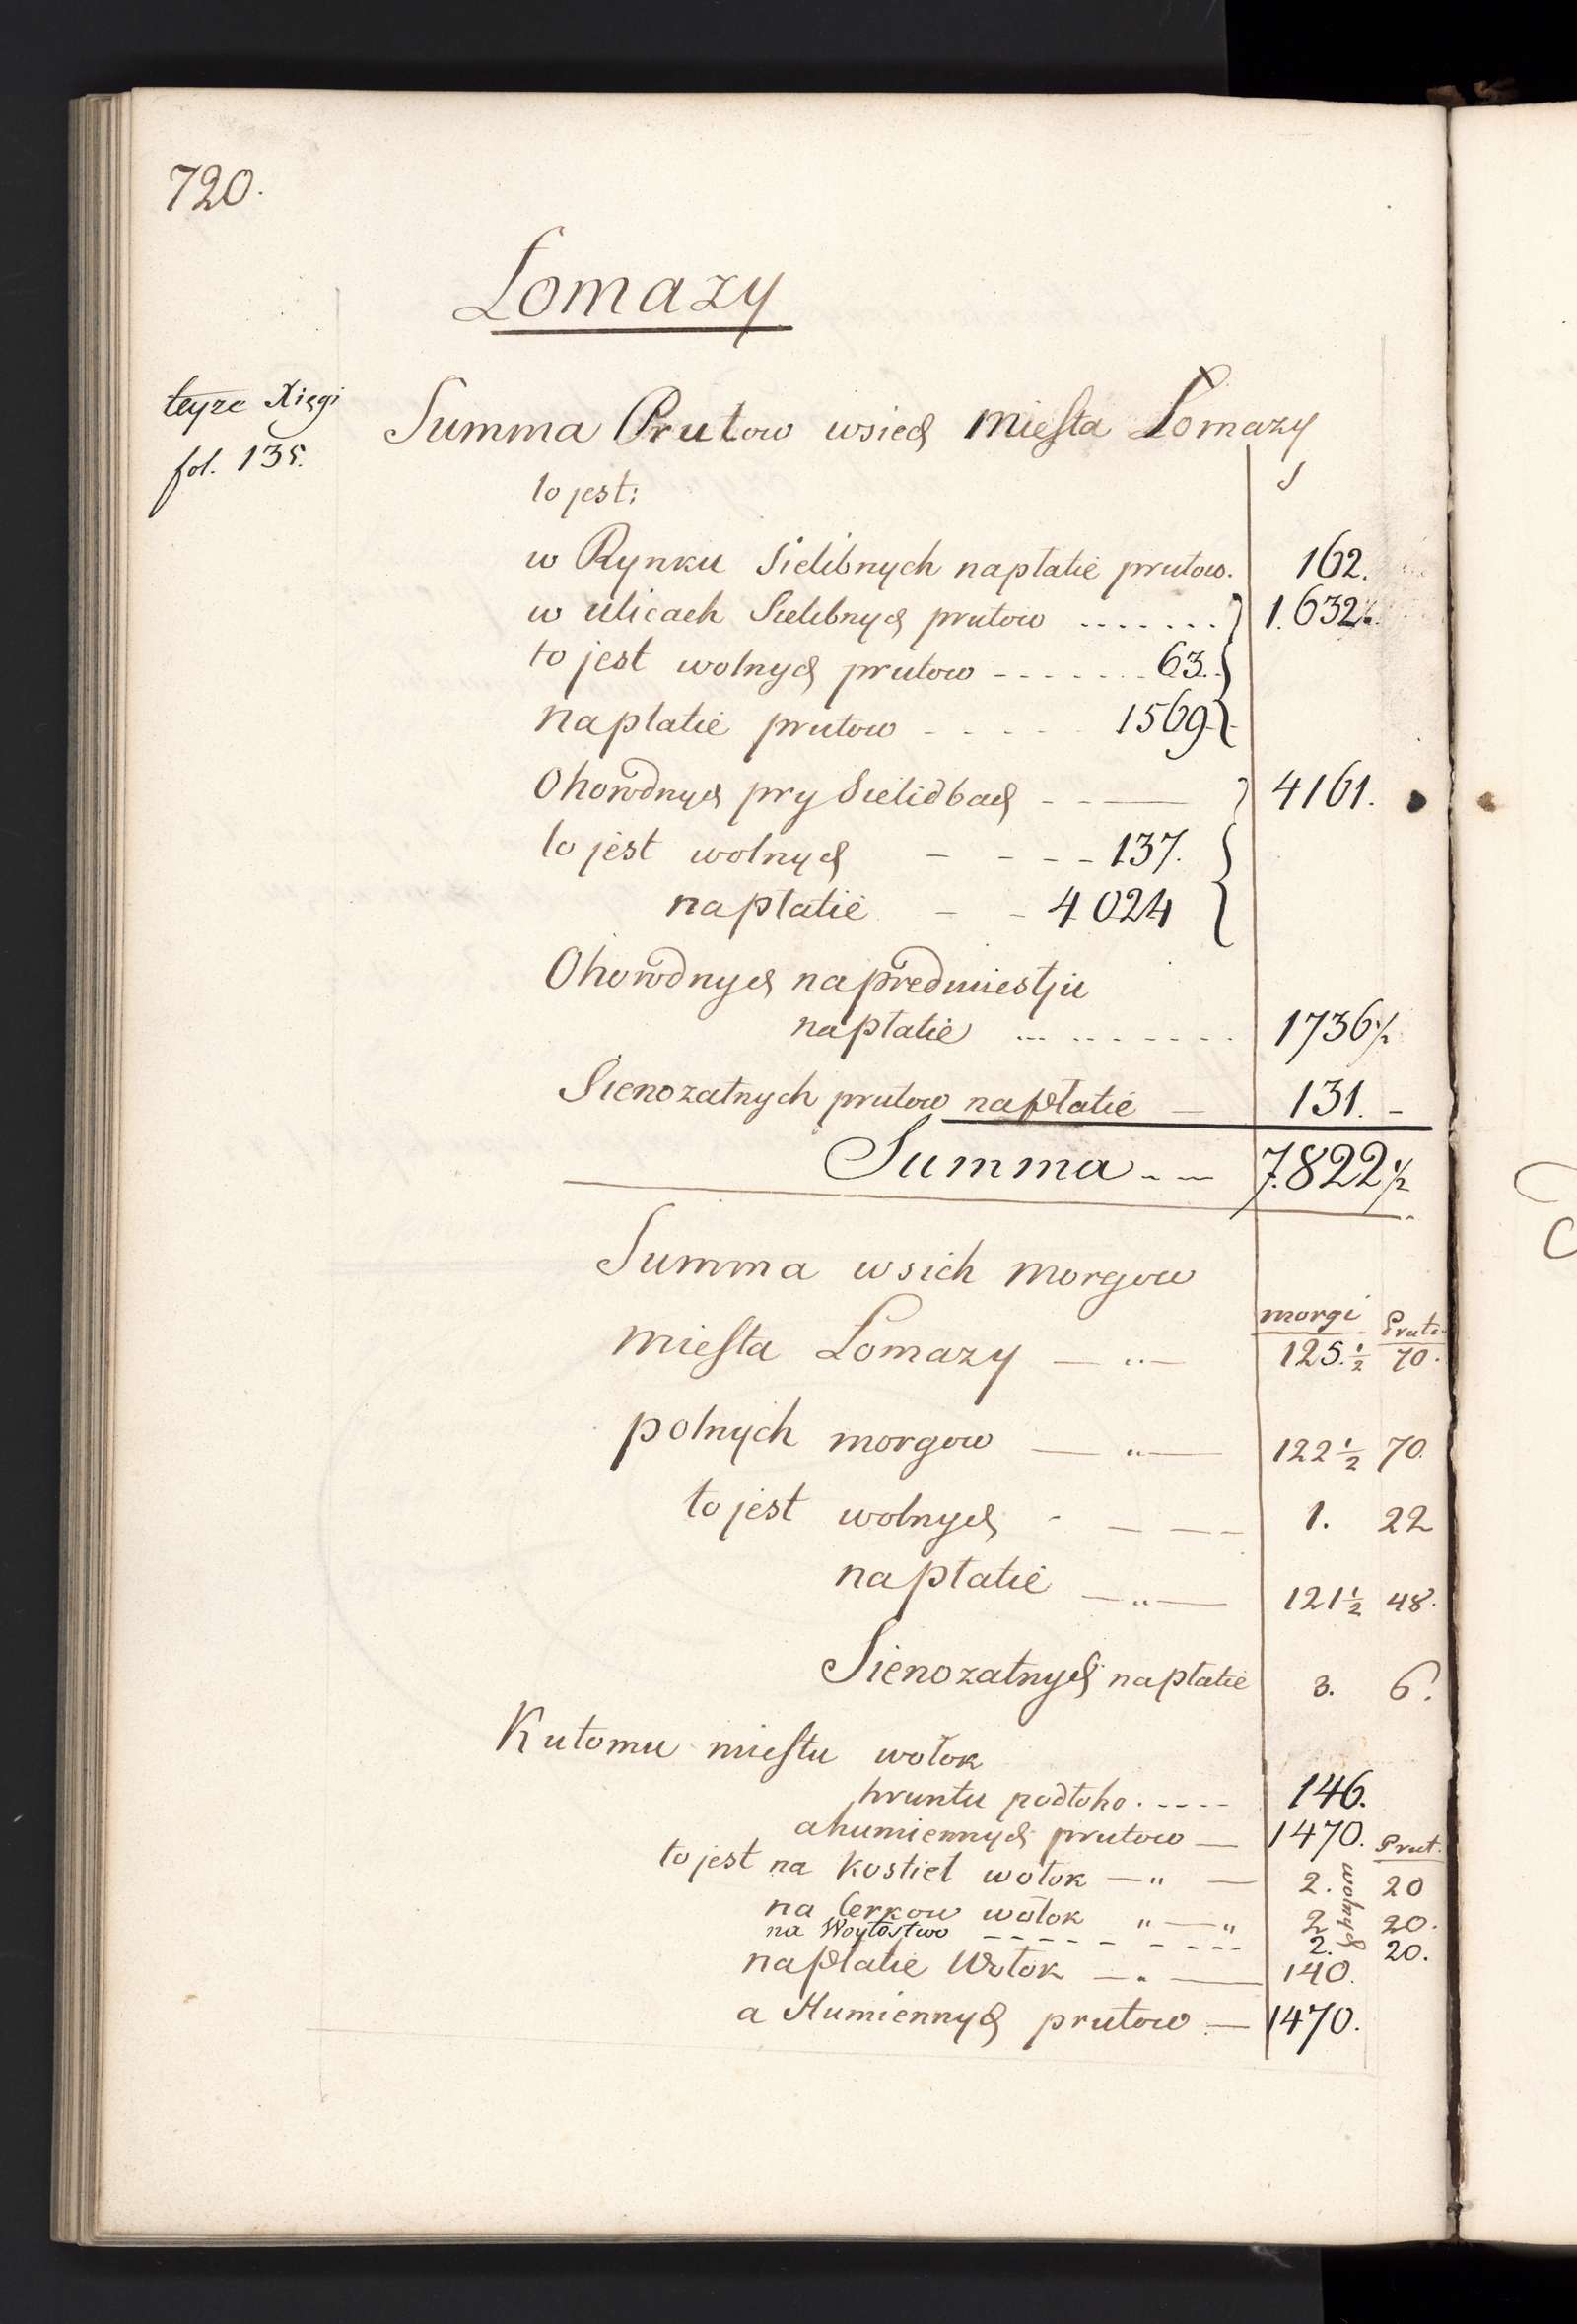 720.
Lomazy
teyze Xięgi
fol. 135.
Summa Prutow wsiech miesta Lomazy
to jest:
w Rynku Sielibnych naplatie prutow. 162.
w ulicach Sielibnych prutow ....... 1.632
to jest wolnych prutow - - - - - - - 63.
naplatie prutow - - - - - 1569
Ohorodnych pry Sielidbach - - — 4161.
to jest wolnych - - - - 137.
naplatie - - 4024
Ohorodnych napredmiestju
naplatie ... - - - - - - 1736½
Sienozatnych prutow naplatie — 131. -
Summa - - 7.822½
Summa wsich morgow
morgi Pruto
miesta Lomazy — „ — 125.½ 70.
polnych morgow — „ — 122½ 70.
to jest wolnych - — — - 1. 22
naplatie — „ — 121½ 48.
Sienozatnych naplatie 3. 6.
Kutomu miestu wołok
hruntu podłoho. - - - - 146.
ahumiennych prutow — 1470. Prut.
to jest na Kostieł wołok — „ — 2. wolnych 20
na Cerkow wołok „ — „ 2 20.
na Woytostwo - - - - - - - - 2. 20.
naplatie Wołok — „ — 140.
a Humiennych prutow — 1470.